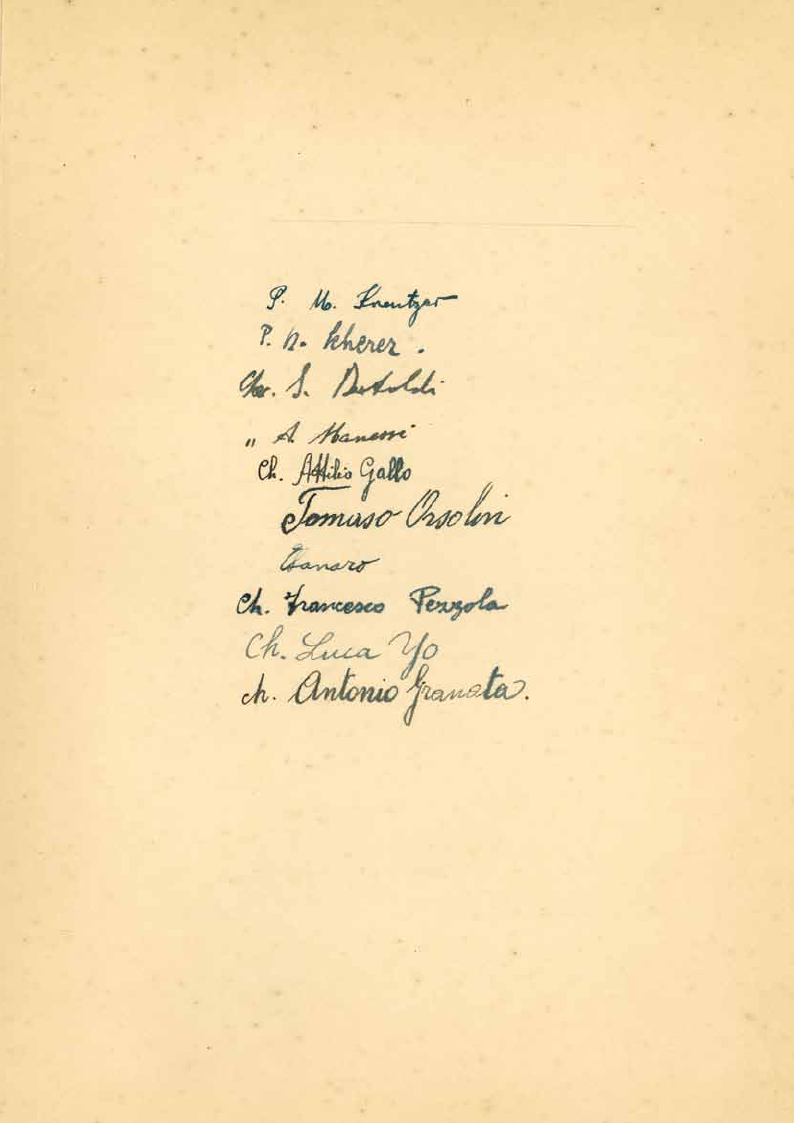 P. M. Kreutzer
P. N. Kherer.
Ch. S. Bertoldi
„ A. Manessi
Ch. Attilio Gallo
Tomaso Orsolin
Ch. Francesco Pezzola
Ch. Luca Yo
ch. Antonio Granata.